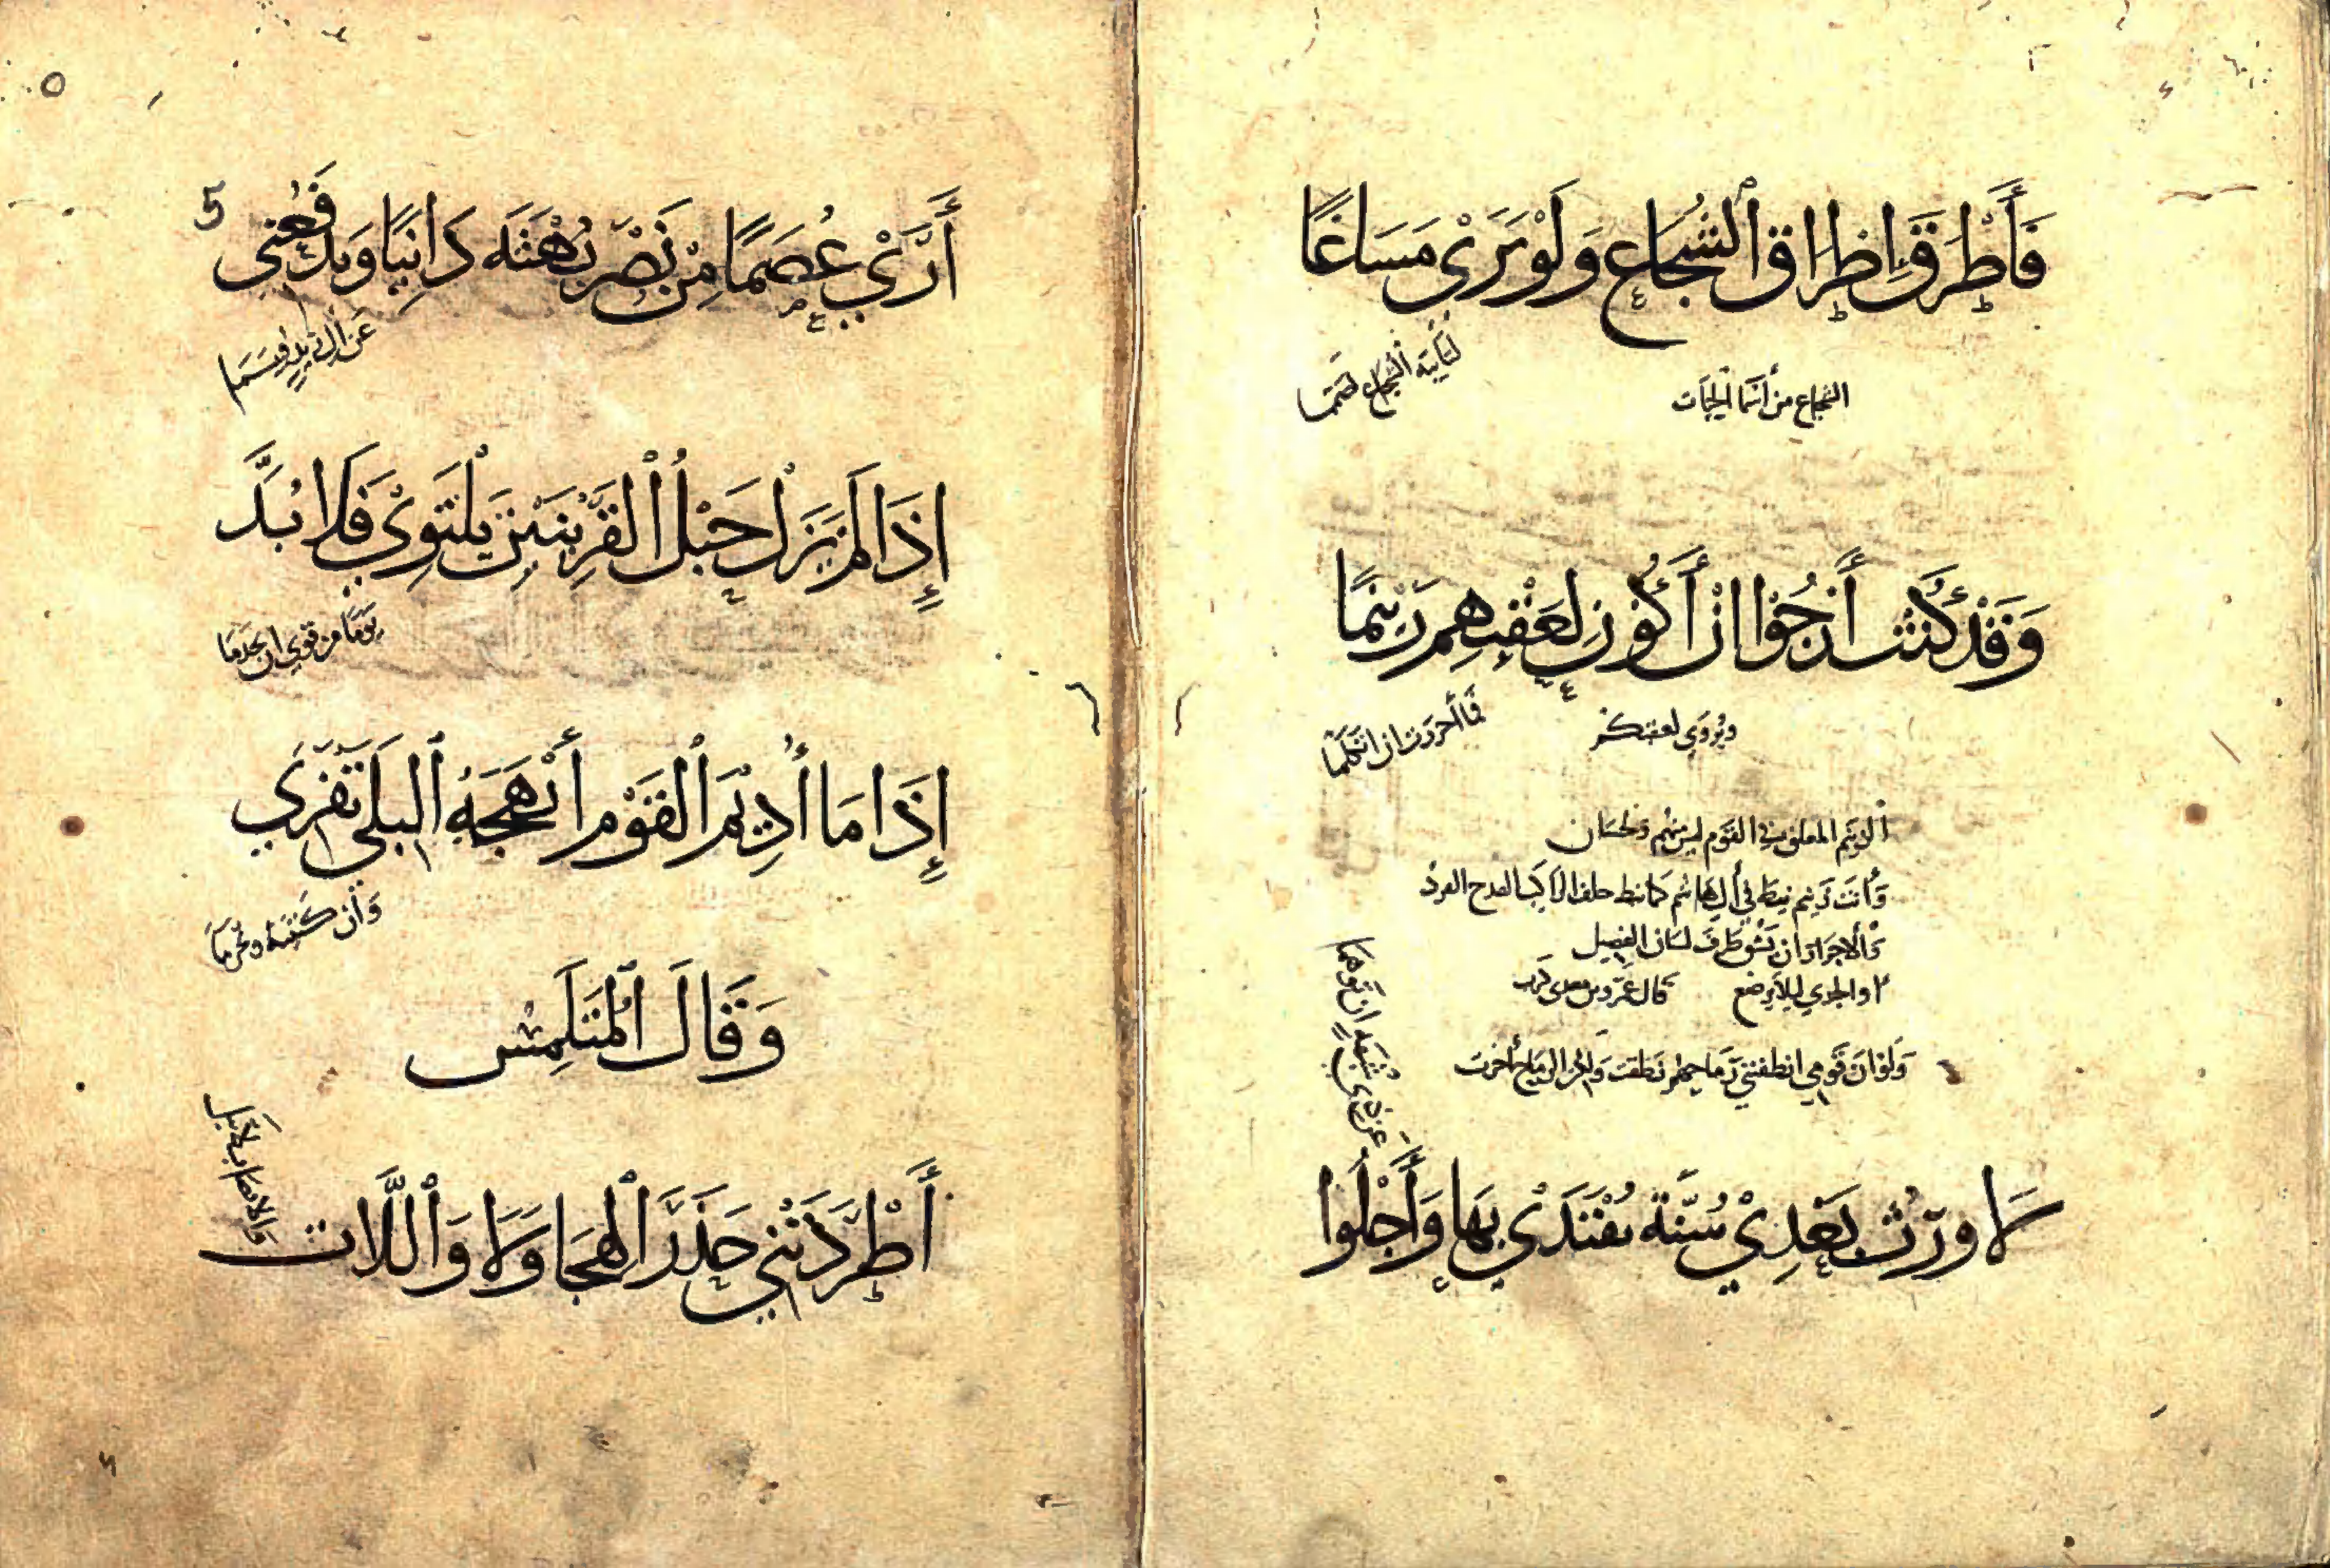 فَأَطْرَقَ إِطْرَاقَ الشُّجَاعِ وَلَوْ يَرَىْ مَسَاغًا
لنابيه الشجاع لصمما
الشجاع من أسما الحيات
وَقَدْ كُنْتُ أَرْجُوْا أنْ أَكُوْنَ لِعَقْبِهِمْ زَنِيْمًا
فما أجررت ان اتكلما
ويُروَى لعقبكم
الزنيم المعلق في القوم ليس منهم ولحسان
وَأَنتَ زَنيم نيط في أل هاشم كما نيط خلف الراكب القدح الفرد
وَالاجرار ان يشق طرف لسان الفصيل
او الجدي ليلا يرضع قال عمرو بن معدى كرب
وَلَوْ أنَّ قَومي انطقتني رماحهم نطقت ولكن الرماح أجرت
لَا وَرِّثُ بَعْدِيْ سُنَّةً يُقْتَدَىْ بِهَا وَأَجْلُوا
عن ذي شبهة ان توهما
5
أَرَىْ عُصَمًا مِنْ نَصْرِ بُهْثَةَ دَانِيًا وَيَدْفَعُنِي
عن ال زيد فبيسما
إِذَا لَمْ يَزَلْ حَبْلُ الْقَرِيْنَيْنِ يَلْتَوِيْ فَلَا بُدَّ
يَوْمًا من قوى ان يجذما
إِذَا مَا أُدِيْمُ القَوْمِ أَنْهَجَهُ البلَى تَفَرَّى
وَأن كتبته وتخرما
وَقَالَ الْمُتَلَمِّسُ
أَطْرَدْتَنِي حَذَرَ الْهِجَا وَلَا وَاْللَّاتِ
وَالانصاب لا تيل